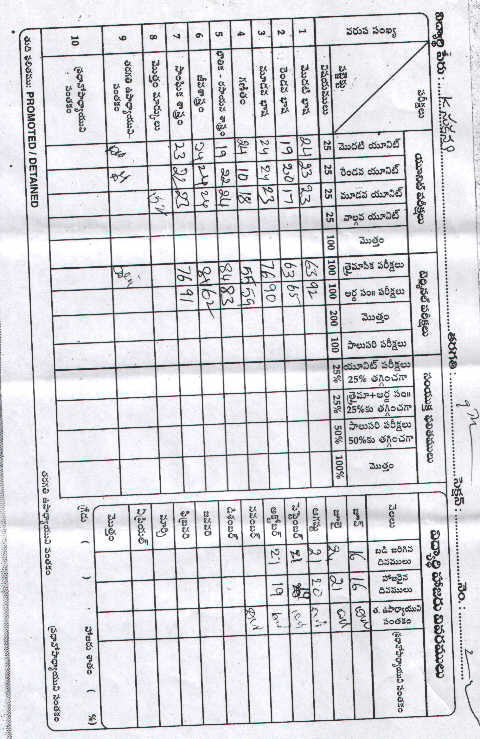 విద్యార్థి పేరు : తరగతి : 9 సెక్షన్ : నెం : 2
వరుస సంఖ్య పరీక్షలు యూనిట్ పరీక్షలు టెర్మినల్ పరీక్షలు సంయుక్త ఫలితములు
పరీక్షల విషయములు మొదటి యూనిట్ రెండవ యూనిట్ మూడవ యూనిట్ నాల్గవ యూనిట్ మొత్తం త్రైమాసిక పరీక్షలు అర్ధ సం॥ పరీక్షలు మొత్తం సాలుసరి పరీక్షలు యూనిట్ పరీక్షలు 25% తగ్గించగా త్రైమా+అర్ధ సం॥ 25%కు తగ్గించగా సాలుసరి పరీక్షలు 50%కు తగ్గించగా మొత్తం
25 25 25 25 100 100 100 200 100 25% 25% 50% 100%
1 మొదటి భాష 24 23 23 63 92
2 రెండవ భాష 19 20 17 63 65
3 మూడవ భాష 24 21 23 76 90
4 గణితం 24 10 18 55 59
5 భౌతిక - రసాయన శాస్త్రం 19 22 24 84 83
6 జీవశాస్త్రం 24 24 24 84 62
7 సాంఘిక శాస్త్రం 23 22 23 76 91
8 మొత్తం మార్కులు
9 తరగతి ఉపాధ్యాయుని సంతకం
10 ప్రధానోపాధ్యాయుని సంతకం
తుది ఫలితము: PROMOTED / DETAINED తరగతి ఉపాధ్యాయుని సంతకం
విద్యార్థి హాజరు వివరములు
నెలలు బడి జరిగిన దినములు హాజరైన దినములు త. ఉపాధ్యాయుని సంతకం ప్రధానోపాధ్యాయుని సంతకం
జూన్ 16 16
జూలై 24 21
ఆగస్టు 21 20
సెప్టెంబర్ 21
అక్టోబర్ 21 19
నవంబర్
డిశంబర్
జనవరి
ఫిబ్రవరి
మార్చి
ఏప్రియల్
మొత్తం
గ్రేడు ( ) హాజరు శాతం ( %)
ప్రధానోపాధ్యాయుని సంతకం